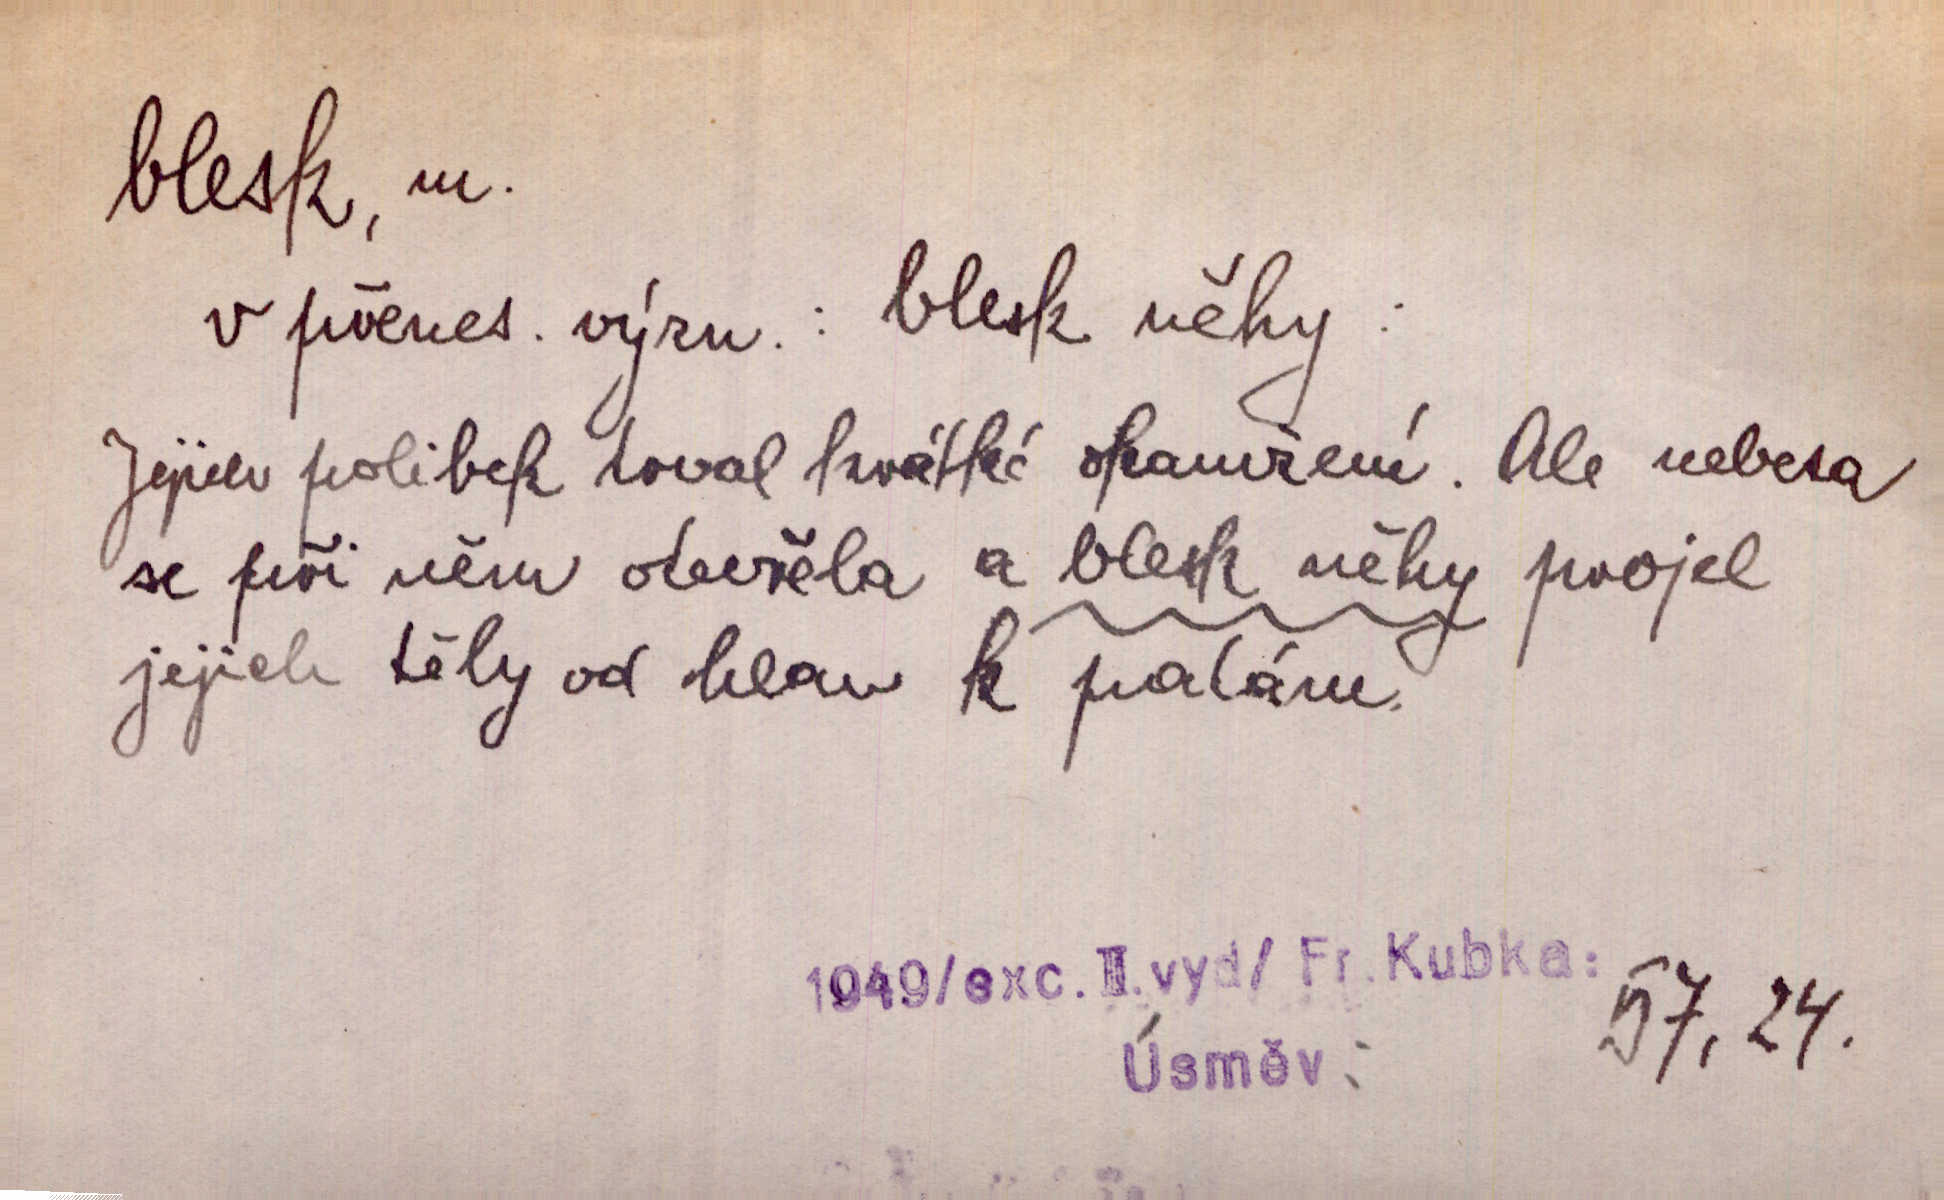 blesk, m.
v přenes. význ. : blesk něhy :
Jejich polibek trval krátké okamžení. Ale nebesa
se při něm otevřela a blesk něhy projel
jejich těly od hlav k patám.
1949/exc. II.vyd/ Fr. Kubka:
Úsměv :
57, 24.